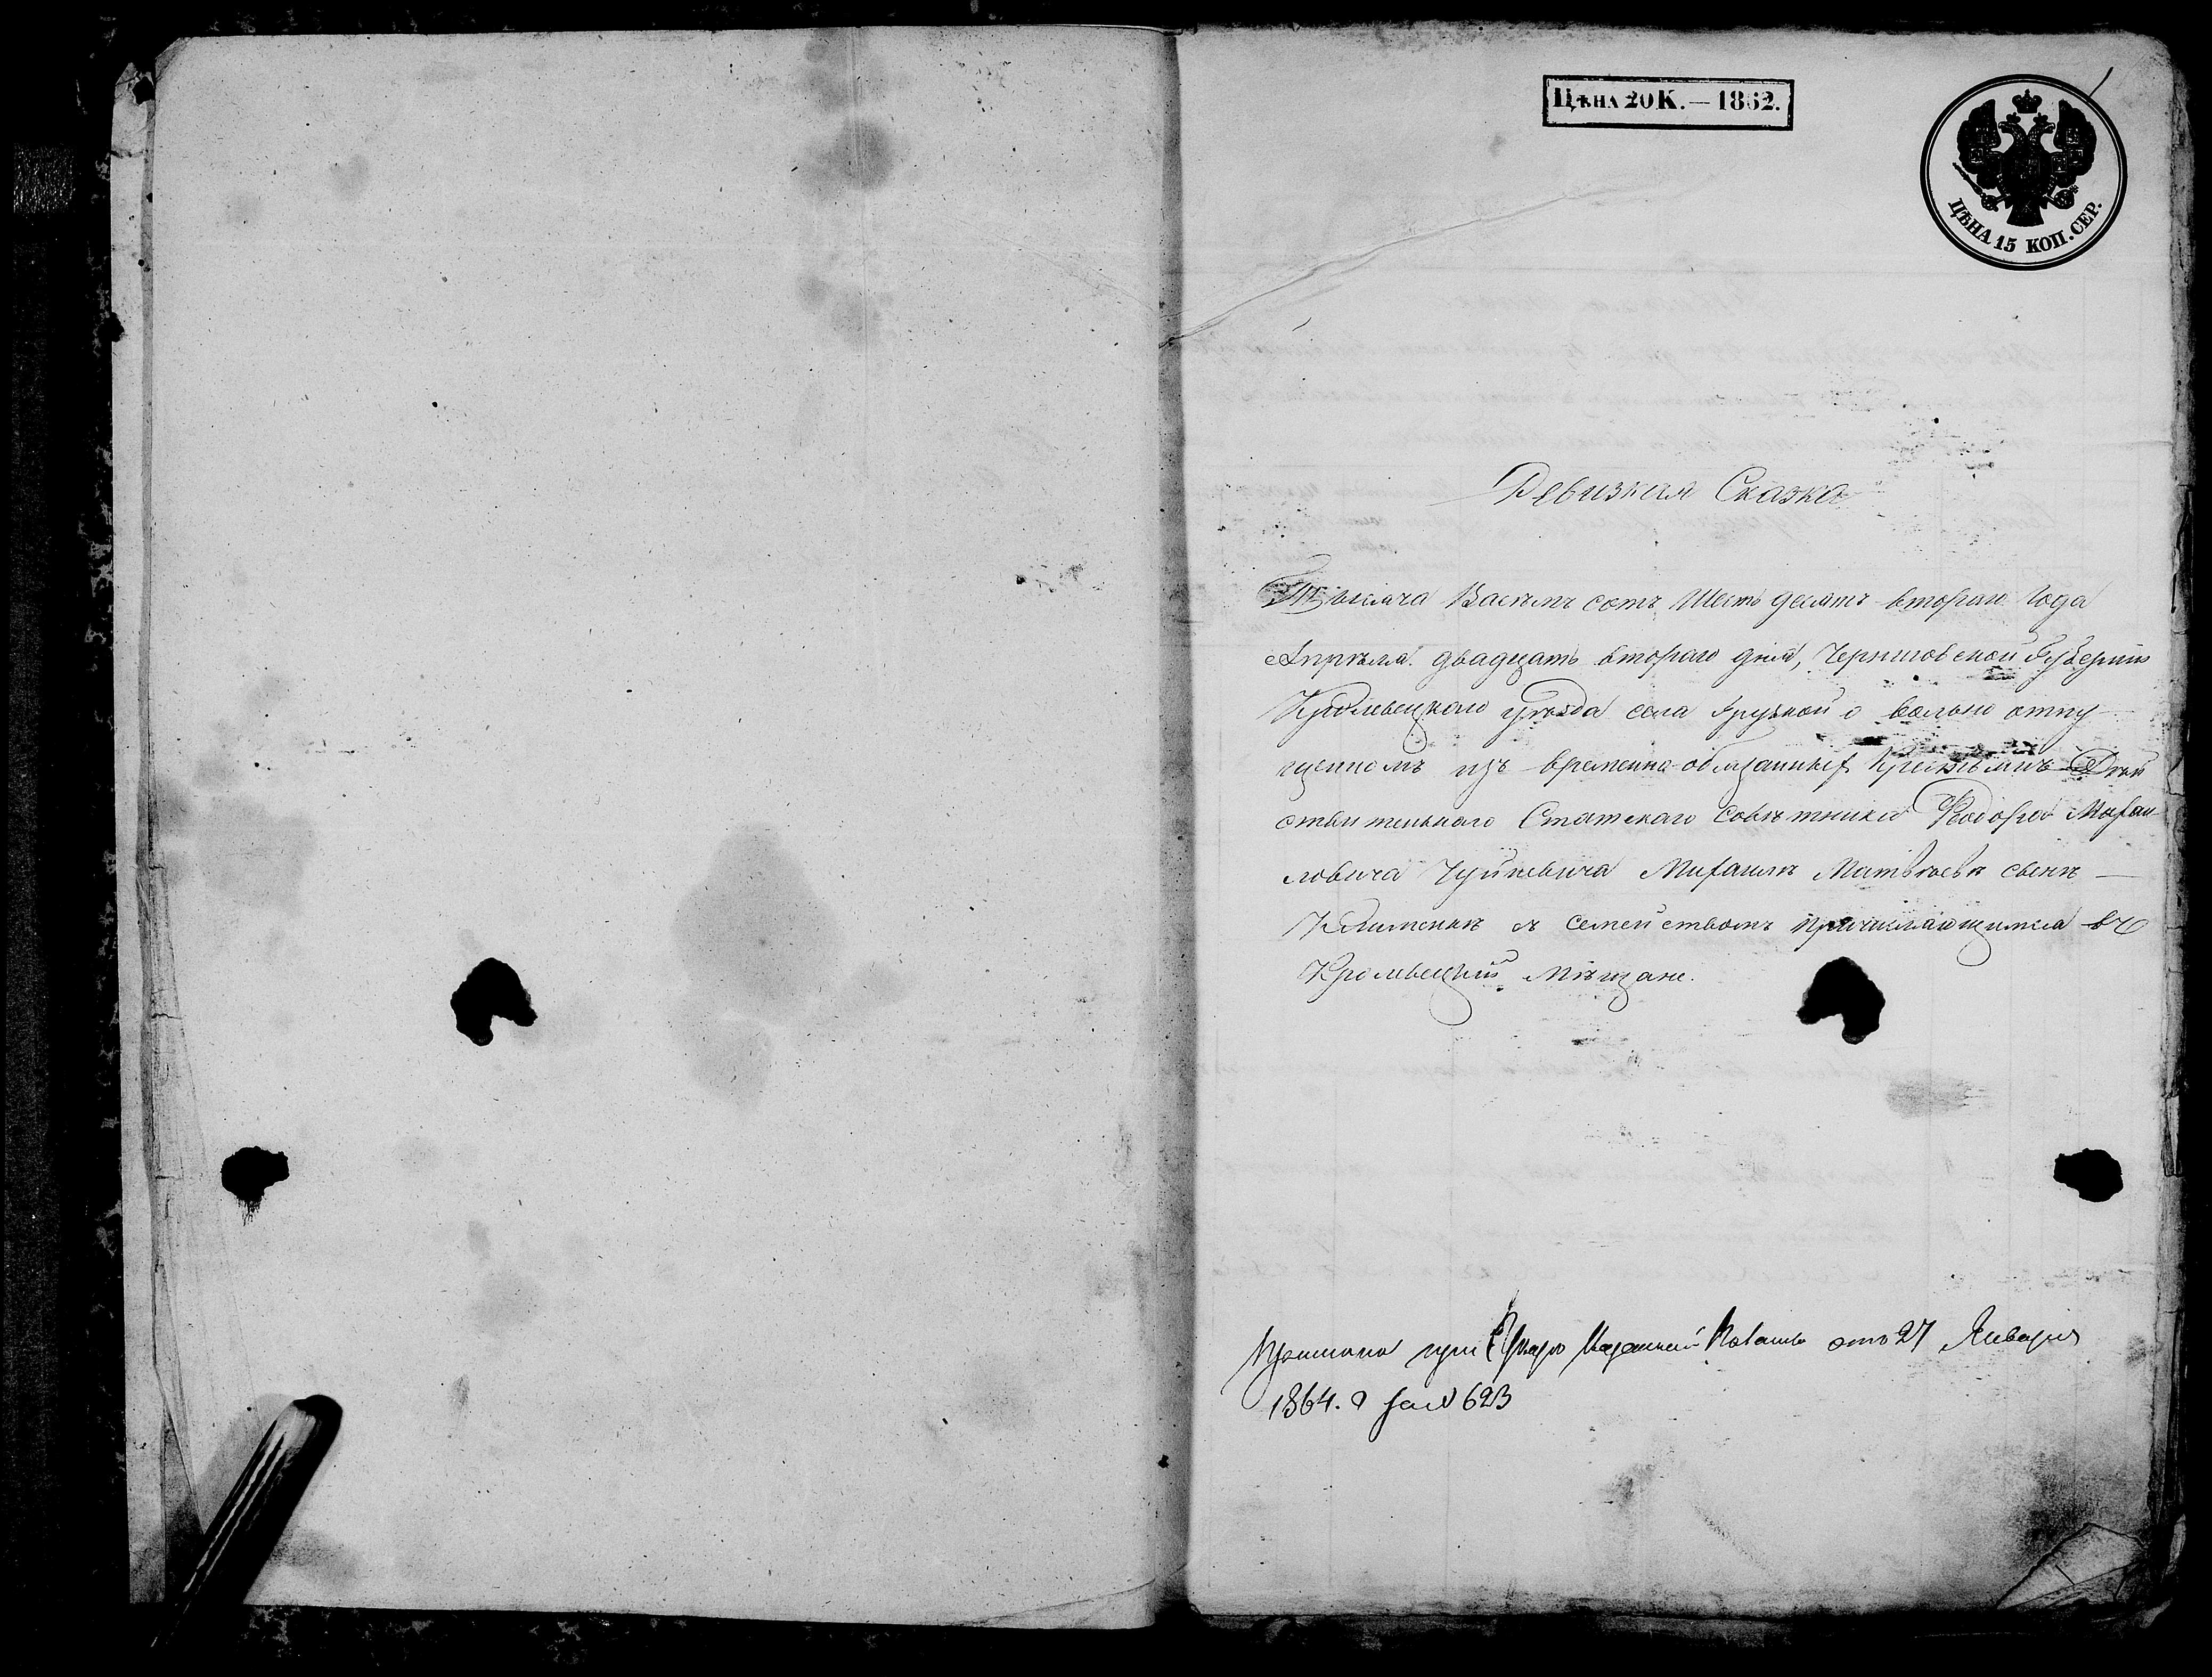 Цѣна 20 К. — 1862.
ЦѢНА 15 КОП. СЕР.
Ревизкая Сказка
Тысяча Восемъ сотъ Шесть десятъ втораго года
Апрѣля двадцать втораго дня, Черниговской Губерніи
Кролевецкаго уѣзда села Грузкой о вольно отпу-
щенномъ изъ временно-обязанныхъ Крестьянъ Дѣй
ствительнаго Статскаго Совѣтника Феодора Михаи-
ловича Чуйкевича Михаилѣ Матвѣевѣ сынѣ —
Клименкѣ съ семействомъ причисляющимся въ
Кролевецкіи Мѣщане.
при Казенной Палаты отъ 27 Января
1864. за № 623